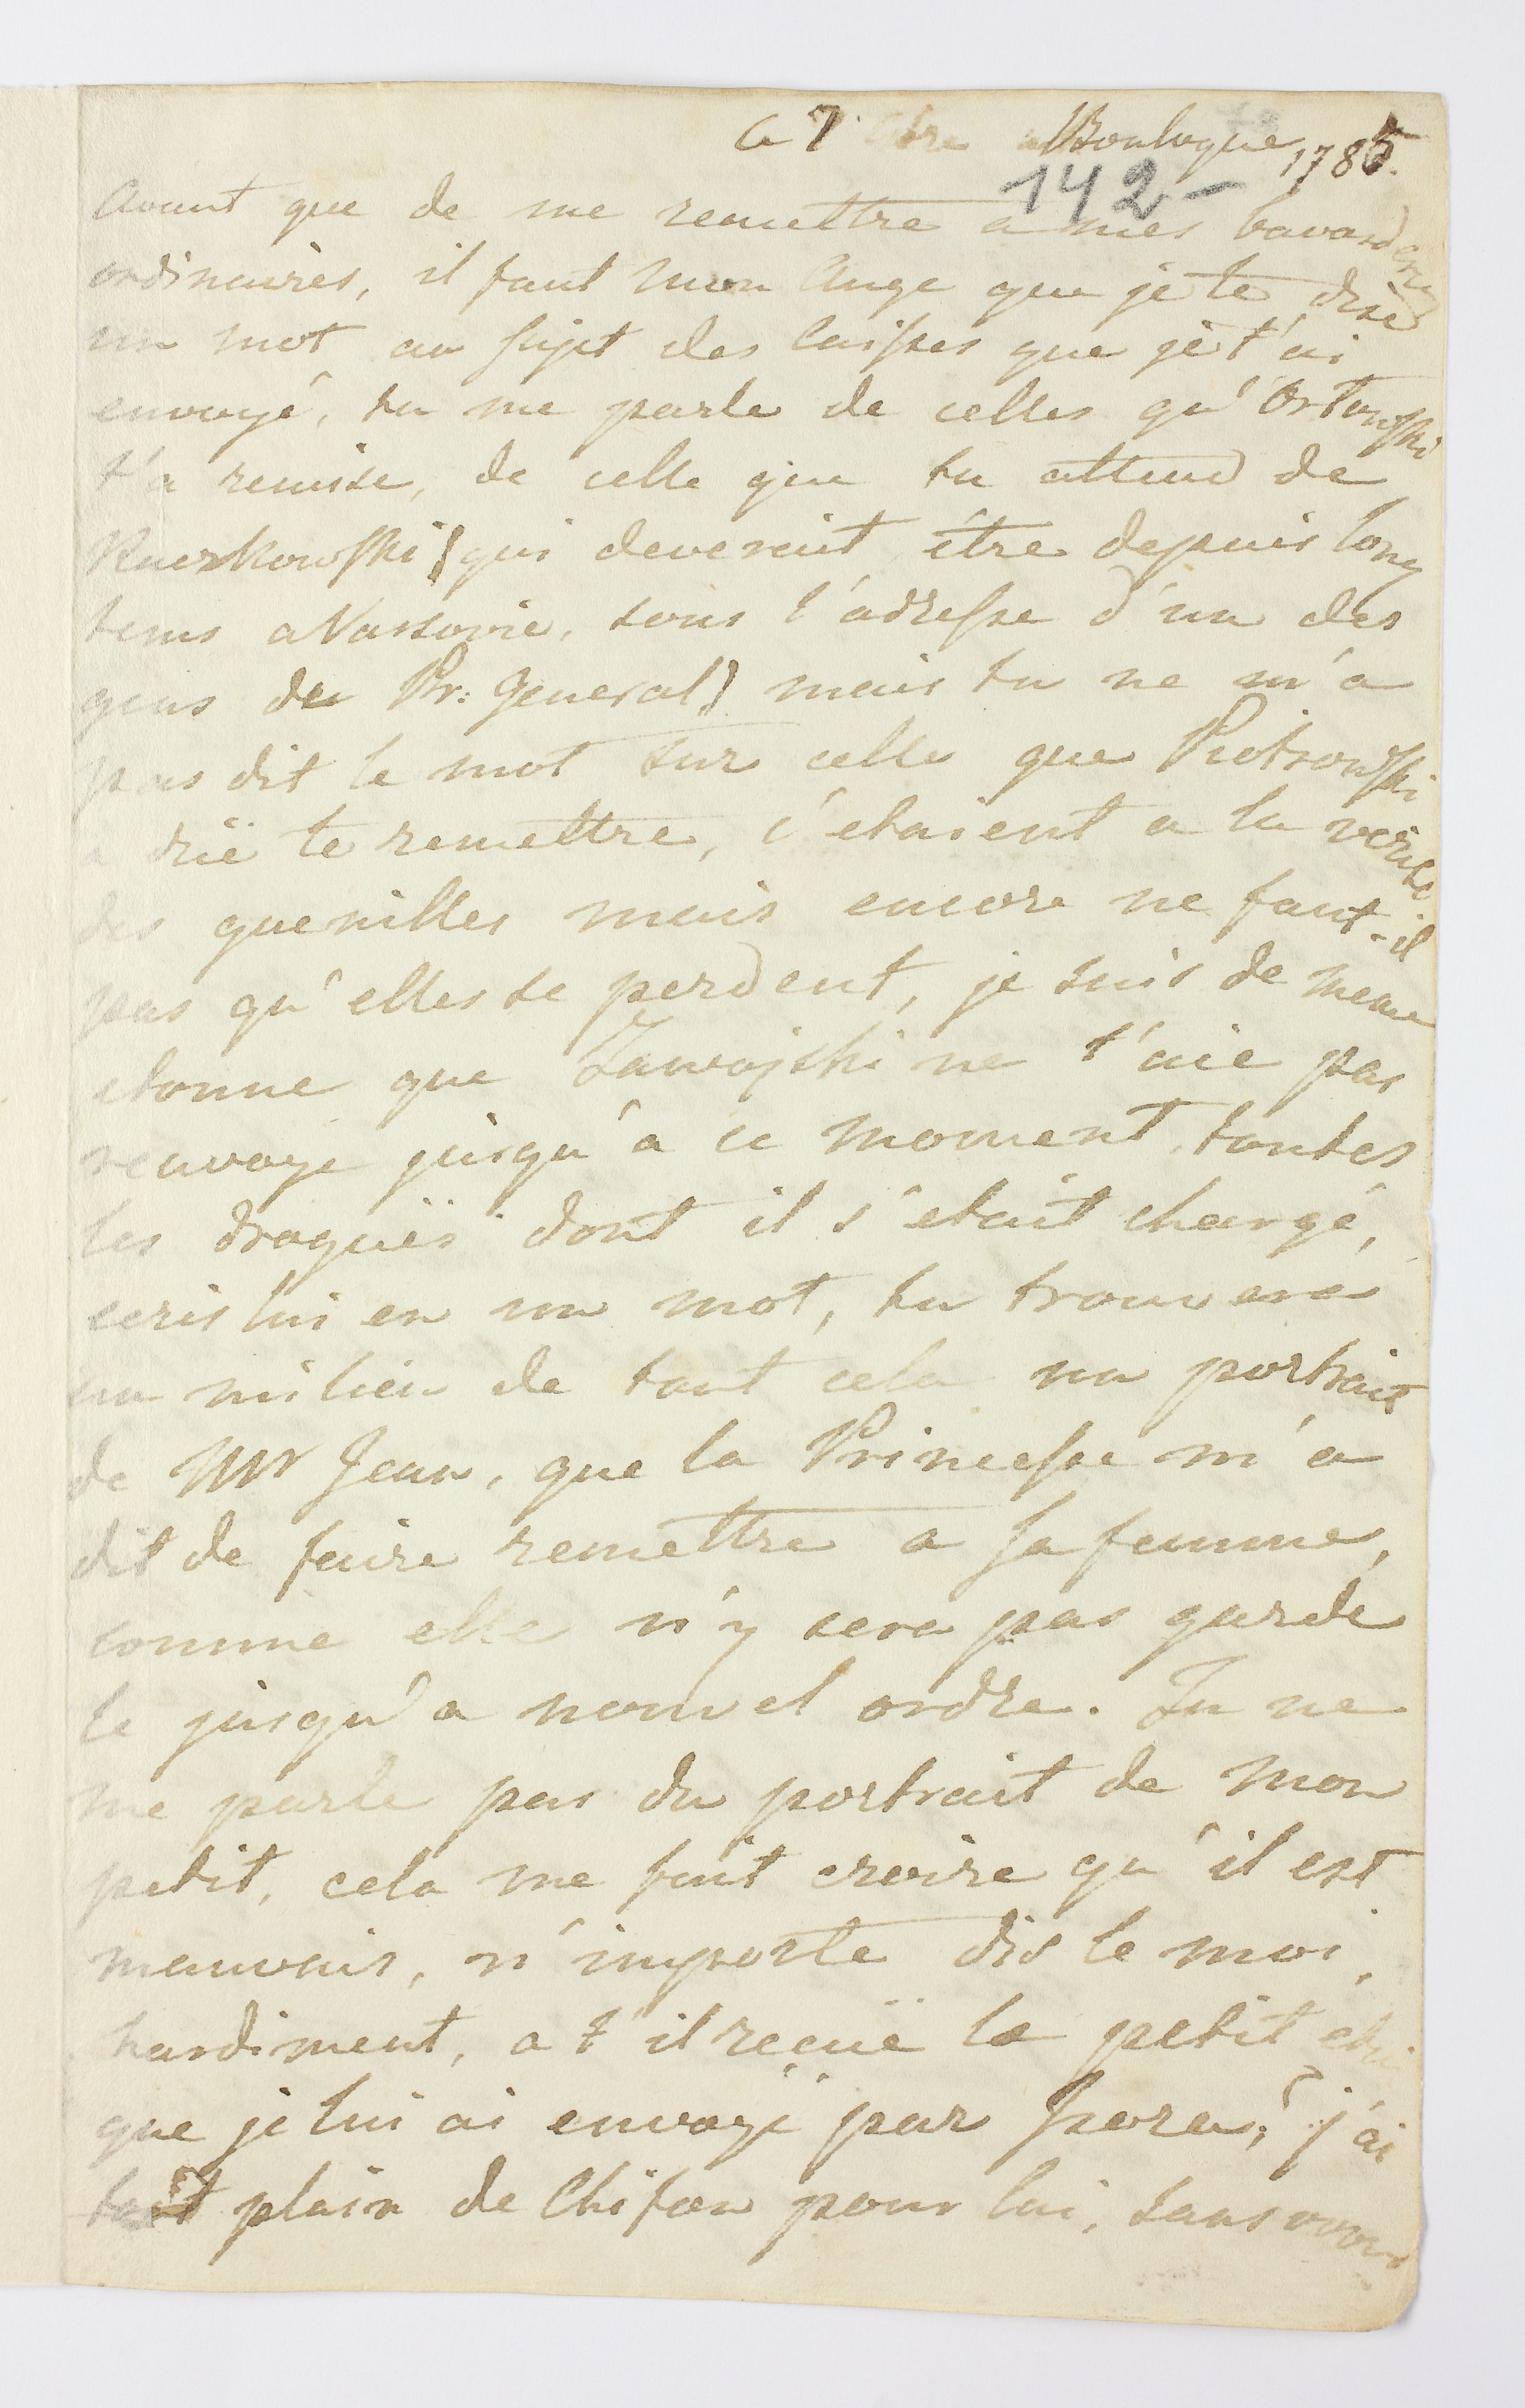 Ce 7. 8bre a Boulogne 1785.
142-
Avant que de me remettre a mes bavarderies
ordinaires, il faut mon Ange que je te dise
un mot au sujet des caisses que je t'ai
envoyé, tu me parle de celles qu'Ortowski
t'a remise, de celle que tu attend de
Ruszkowski (qui deveroit être depuis long
tems a Varsovie, sous l'adresse d'un des
gens du Pr: General) mais tu ne m'a
pas dit le mot sur celle que Piotrowski
a düe te remettre, c'etaient a la verité
des guenilles mais encore ne faut-il
pas qu'elles se perdent, je suis de meme
etonne que Zawojski ne t'aie pas
renvoye jusqu'à ce moment, toutes
les droguës dont il s'etait chargé,
ecris lui en un mot, tu trouveras
au milieu de tout cela un portrait
de Mr Jean, que la Princesse m'a
dit de faire remettre a sa femme,
comme elle n'y sera pas garde
le jusqu'a nouvel ordre. Tu ne
me parle pas du portrait de mon
petit, cela me fait croire qu'il est
mauvais, n'importe dis le moi,
hardiment, a t'il reçuë le petit etui
que je lui ai envoyé par Spera? j'ai
tout plein de Chifon pour lui, sans avoir